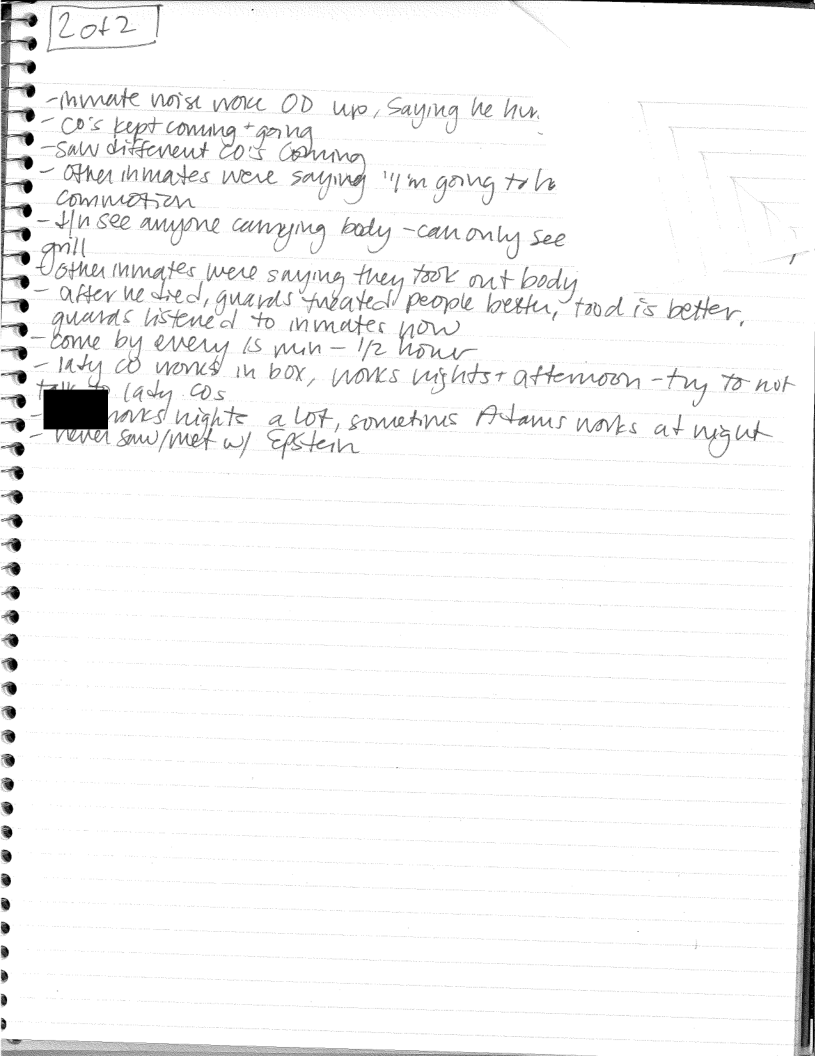 2 of 2
- inmate noise woke OD up, saying he hun
- CO's kept coming + going
- saw different CO's coming
- other inmates were saying "I'm going to
commotion
- d/n see anyone carrying body - can only see
grill
- other inmates were saying they took out body
- after he died, guards treated people better, food is better,
guards listened to inmates now
- come by every 15 min - 1/2 hour
- lady CO works in box, works nights + afternoon - try to not
talk to lady COs
- works nights a lot, sometimes Adams works at night
- never saw/met w/ Epstein